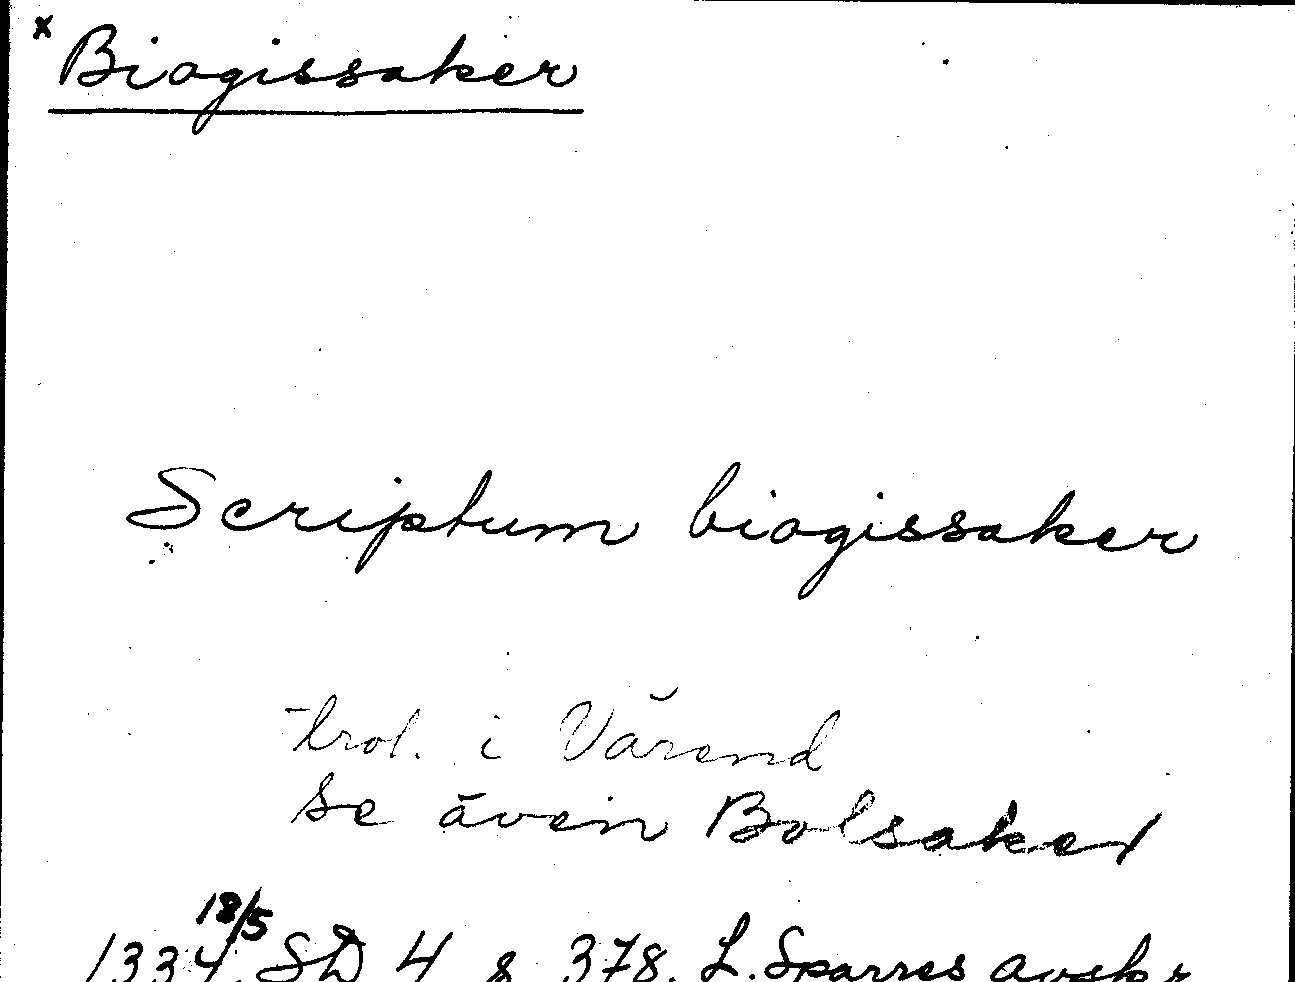 x Biogissaker
Scriptum biogissaker
trol. i Värend
se även Bolsaker
18/5
1334 SD 4 s 378. L. Sparres avskr